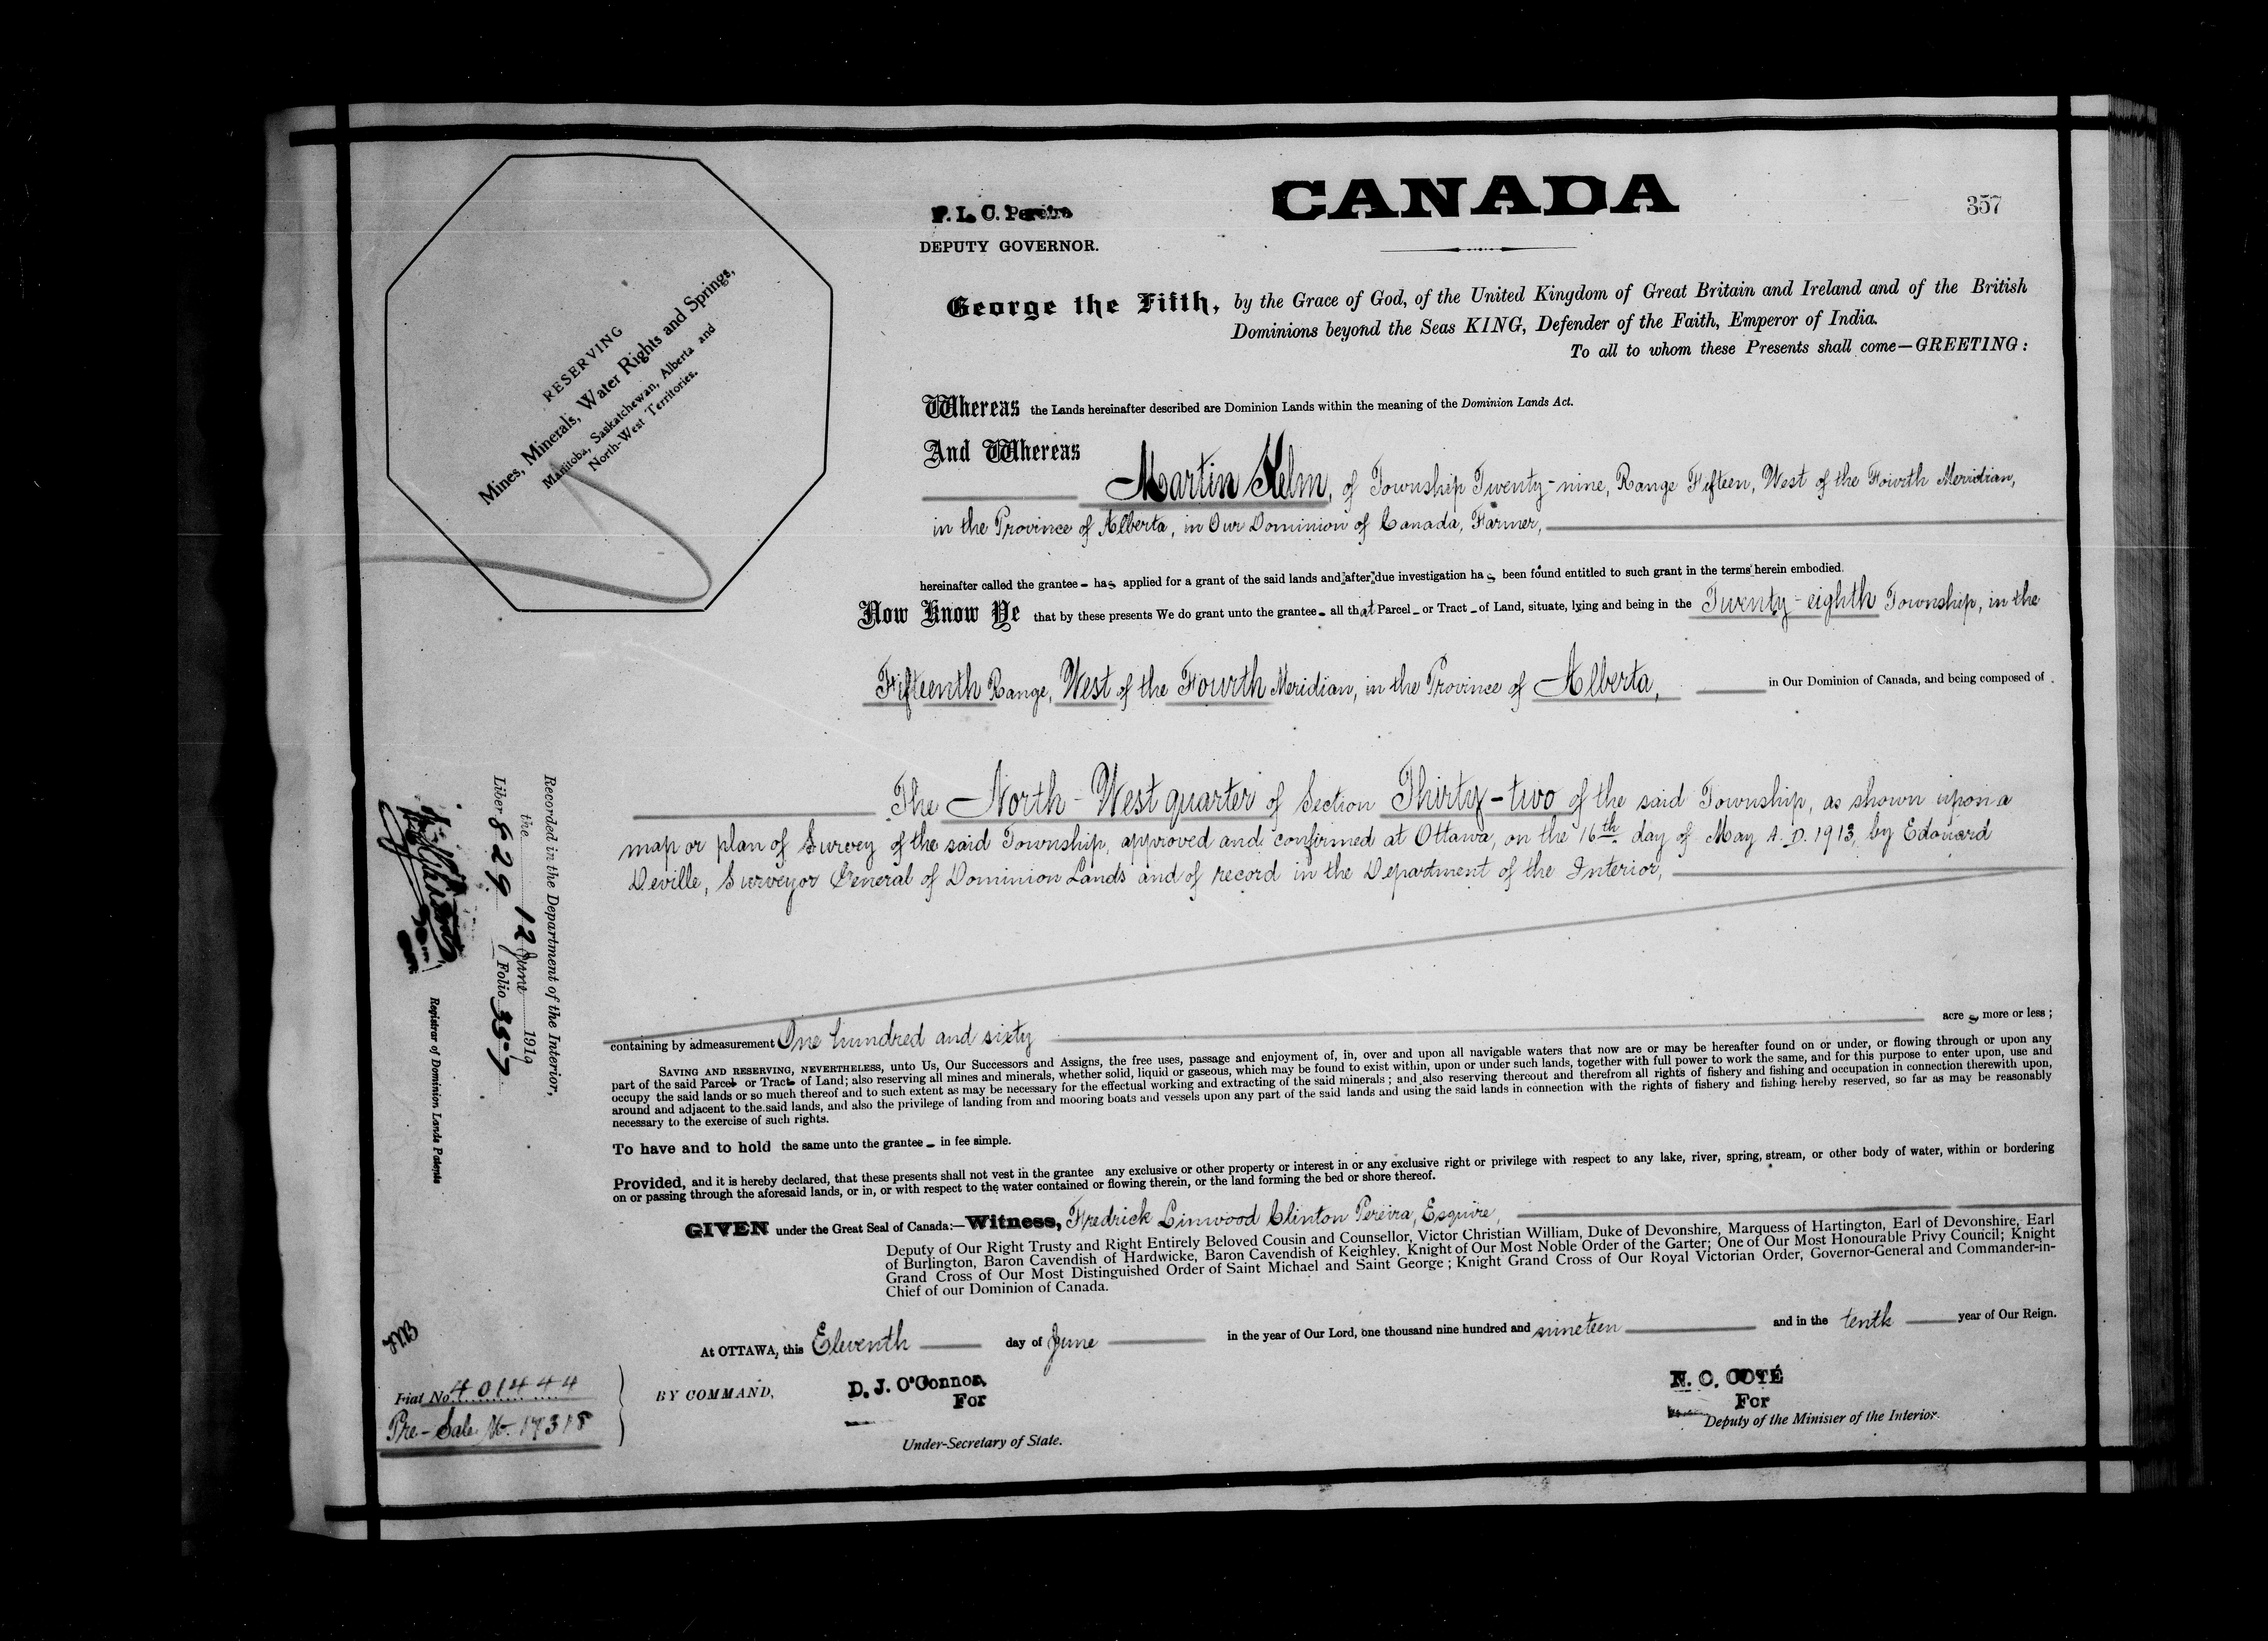 CANADA
357
F. L. C. Pereira
DEPUTY GOVERNOR.
RESERVING
Mines, Minerals, Water Rights and Springs,
Manitoba, Saskatchewan, Alberta and
North-West Territories.
George the Fifth, by the Grace of God, of the United Kingdom of Great Britain and Ireland and of the British
Dominions beyond the Seas KING, Defender of the Faith, Emperor of India.
To all to whom these Presents shall come—GREETING:
Whereas the Lands hereinafter described are Dominion Lands within the meaning of the Dominion Lands Act.
And Whereas
Martin Kelm, of Township Twenty-nine, Range Fifteen, West of the Fourth Meridian,
in the Province of Alberta, in Our Dominion of Canada, Farmer,
hereinafter called the grantee - has applied for a grant of the said lands and after due investigation has been found entitled to such grant in the terms herein embodied.
Now Know Ye that by these presents We do grant unto the grantee - all that Parcel - or Tract - of Land, situate, lying and being in the Twenty-eighth Township, in the
Fifteenth Range, West of the Fourth Meridian, in the Province of Alberta, in Our Dominion of Canada, and being composed of
The North-West quarter of Section Thirty-two of the said Township, as shown upon a
map or plan of Survey of the said Township, approved and confirmed at Ottawa, on the 16th day of May A.D. 1913, by Edouard
Deville, Surveyor General of Dominion Lands and of record in the Department of the Interior,
containing by admeasurement One hundred and sixty acres, more or less;
SAVING AND RESERVING, NEVERTHELESS, unto Us, Our Successors and Assigns, the free uses, passage and enjoyment of, in, over and upon all navigable waters that now are or may be hereafter found on or under, or flowing through or upon any
part of the said Parcel or Tract of Land; also reserving all mines and minerals, whether solid, liquid or gaseous, which may be found to exist within, upon or under such lands, together with full power to work the same, and for this purpose to enter upon, use and
occupy the said lands or so much thereof and to such extent as may be necessary for the effectual working and extracting of the said minerals; and also reserving thereout and therefrom all rights of fishery and fishing and occupation in connection therewith upon,
around and adjacent to the said lands, and also the privilege of landing from and mooring boats and vessels upon any part of the said lands and using the said lands in connection with the rights of fishery and fishing hereby reserved, so far as may be reasonably
necessary to the exercise of such rights.
To have and to hold the same unto the grantee - in fee simple.
Provided, and it is hereby declared, that these presents shall not vest in the grantee any exclusive or other property or interest in or any exclusive right or privilege with respect to any lake, river, spring, stream, or other body of water, within or bordering
on or passing through the aforesaid lands, or in, or with respect to the water contained or flowing therein, or the land forming the bed or shore thereof.
GIVEN under the Great Seal of Canada:—Witness, Fredrick Linwood Clinton Pereira, Esquire,
Deputy of Our Right Trusty and Right Entirely Beloved Cousin and Counsellor, Victor Christian William, Duke of Devonshire, Marquess of Hartington, Earl of Devonshire, Earl
of Burlington, Baron Cavendish of Hardwicke, Baron Cavendish of Keighley, Knight of Our Most Noble Order of the Garter; One of Our Most Honourable Privy Council; Knight
Grand Cross of Our Most Distinguished Order of Saint Michael and Saint George; Knight Grand Cross of Our Royal Victorian Order, Governor-General and Commander-in-
Chief of our Dominion of Canada.
At OTTAWA, this Eleventh day of June in the year of Our Lord, one thousand nine hundred and nineteen and in the tenth year of Our Reign.
BY COMMAND,
D. J. O'Connor,
For
Under-Secretary of State.
N. C. COTÉ
For
Deputy of the Minister of the Interior.
Recorded in the Department of the Interior,
the 12 June 1919
Liber 829 Folio 357
Registrar of Dominion Lands Patents
Fiat No. 401444
Pre-Sale No. 17318